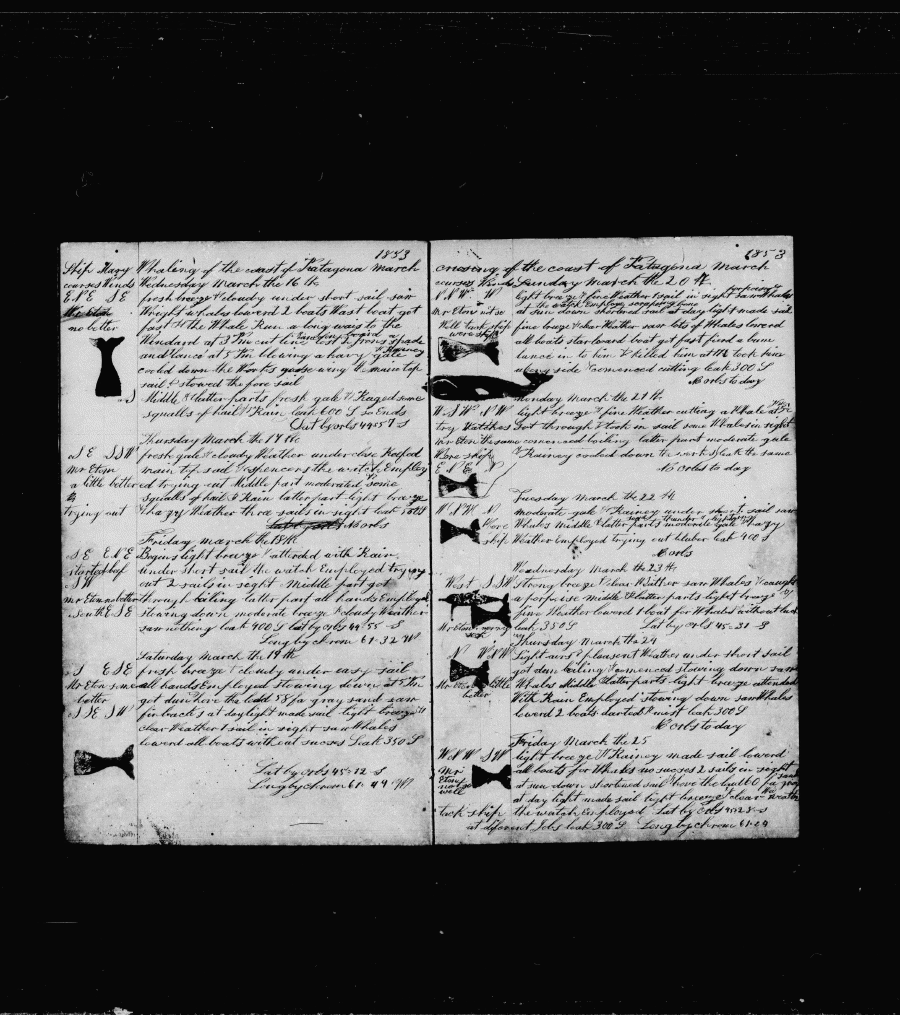 1853
Ship Mary Whaling of the coast of Patagona March
courses Winds Wednesday march the 16 th
E N E S E fresh breeze & cloudy under short sail saw
Mr Eton Wright whales lowerd 2 boats Wast boat got
no better fast to the Whale Run a long wais to the
Windard at 3 Pm cut line lost 2 irons spade
and lance at 5 Pm blowing a havy gale
coold down the Works goose wing the main top
sail & stowed the fore sail
Middle & latter parts fresh gale & Raged some
squalls of hail & Rain leak 600 S So Ends
Lat by orbs 44=57 S
Thursday March the 17 th
S E S S W fresh gale & cloudy Weather under close Reefed
Mr Eton main top sail & spencers the watch Employ
a little better ed trying out Middle part moderated some
squalls of hail & Rain latter part light breeze
trying out & hazy Weather thre sails in sight leak 500 S
No orbs
Friday march the 18 th
S E E N E Begins light breeze & attended with Rain
under short sail the watch Employed trying
S W out 2 sails in sight Middle part got
Mr Eton no better through boiling latter part all hands Employed
South E S E stowing down moderate breeze & cloudy Weather
saw nothing leak 400 S Lat by orbs 44=55 S
Long by chrom 61=32 W
Saturday march the 19 th
S E S E fresh breeze & cloudy under easy sail
Mr Eton some all hands Employed stowing down at 5 Pm
better got dun hove the lead 58 fa gray sand saw
S S E S W finbacks at daylight made sail light breeze &
clear Weather 1 sail in sight saw Whales
lowerd all boats without sucses Leak 350 S
Lat by orbs 45=12 S
Long by chrom 61=49 W
1853
cruising of the coast of Patagona March
courses Winds Sunday march the 20 th
light breeze & fine Weather 1 sail in sight saw Whales
Mr Eton not so at sun down shortened sail at day light made sail
Well tack ship fine breeze & clear Weather saw lots of Whales lowerd
were ship all boats starboard boat got fast fired a bum
lance in to him & killed him at took him
along side & comenced cutting leak 300 S
No orbs to day
Monday march the 21 th
W S W N W light breeze & fine Weather cutting a Whale at
try Watches Got through & took in sail some Whales in sight
Mr Eton the same comenced boiling latter part moderate gale
Were ship & Rainey cooled down the works leak the same
E N E N No orbs to day
Tuesday march the 22 th
W N W N moderate gale & Rainey under short sail saw
Were Whales Middle & latter parts moderate gale & hazy
ship Weather Employed trying out bluber leak 400 S
No orbs
Wednesday march the 23 th
West S S W strong breeze & clear Wether saw Whales & caught
a porpoise Middle & latter parts light breeze &
fine Weather lowerd 1 boat for Whales without luck
leak 350 S Lat by orbs 45=31 S
Thursday March the 24
N W N W Light airs & pleasent Weather under short sail
got dun boiling & comenced stowing down saw
Mr Eton little Whales Middle & latter parts light breeze attended
better With Rain Employed stowing down saw Whales
lowerd 2 boats darted & mist leak 300 S
No orbs to day
Friday March the 25
W N W S W light breeze & Rainey made sail lowerd
Mr all boats for Whales no sucses 2 sails in sight
Eton at sun down shortened sail & hove the lead 60 fa gray sand
not so at day light made sail light breeze & clear Weather
well
tack ship the watch Employed Lat by Orbs 45=28 S
at diferent Jobs leak 300 S Long by chrom 61=29